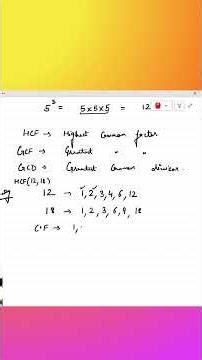 5³ = 5×5×5 = 12
HCF → Highest Common factor
GCF → Greatest " "
GCD → Greatest Common divisor.
HCF(12,18)
eg 12 → 1, 2, 3, 4, 6, 12
18 → 1, 2, 3, 6, 9, 18
C.F → 1,